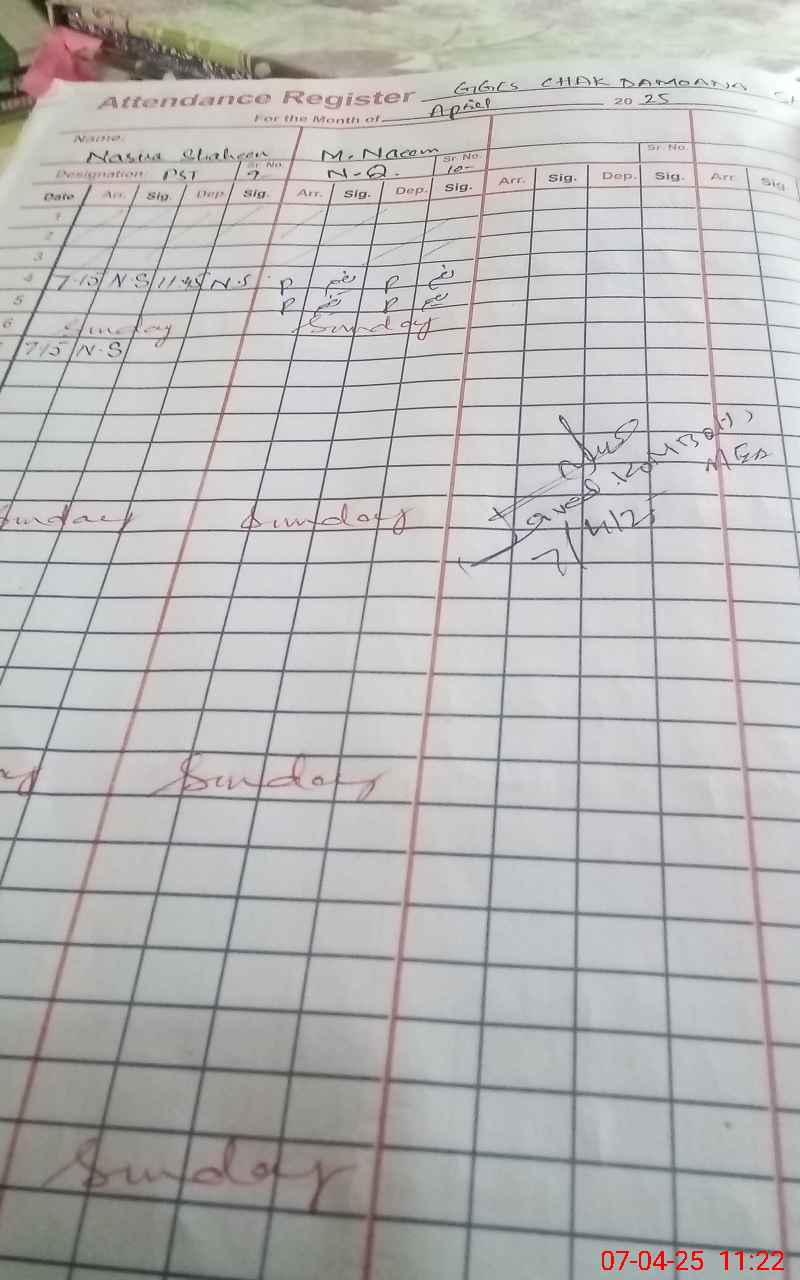 Attendance Register GGES CHAK DAMOANA
For the Month of April 2025
Name:
Nasira Shaheen M. Naeem
Designation PST Sr. No. 9 N-Q. Sr. No. 10- Sr. No.
Date Arr. Sig. Dep. Sig. Arr. Sig. Dep. Sig. Arr. Sig. Dep. Sig. Arr. Sig
1
2
3
4 7-15 N-S 11-45 N-S P نعیم P نعیم
5 P نعیم P نعیم
6 Sunday Sunday
7-15 N-S
MEA
7/4/25
Sunday Sunday
Sunday
Sunday
07-04-25 11:22